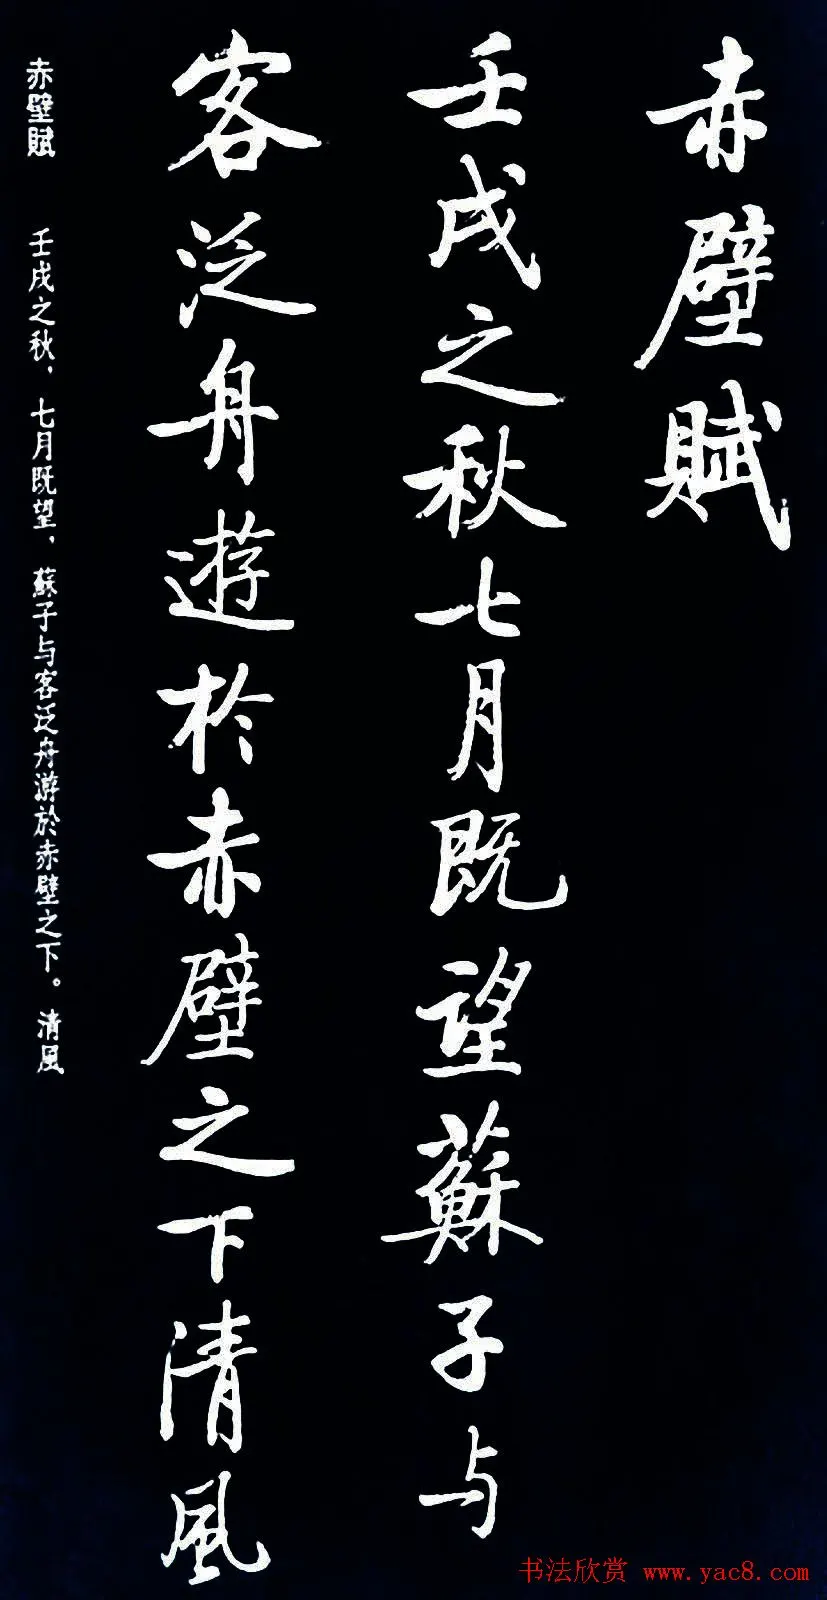 赤壁賦
壬戌之秋七月既望蘇子与
客泛舟遊於赤壁之下清風
赤壁賦 壬戌之秋，七月既望，蘇子与客泛舟游於赤壁之下。清風
书法欣赏 www.yac8.com